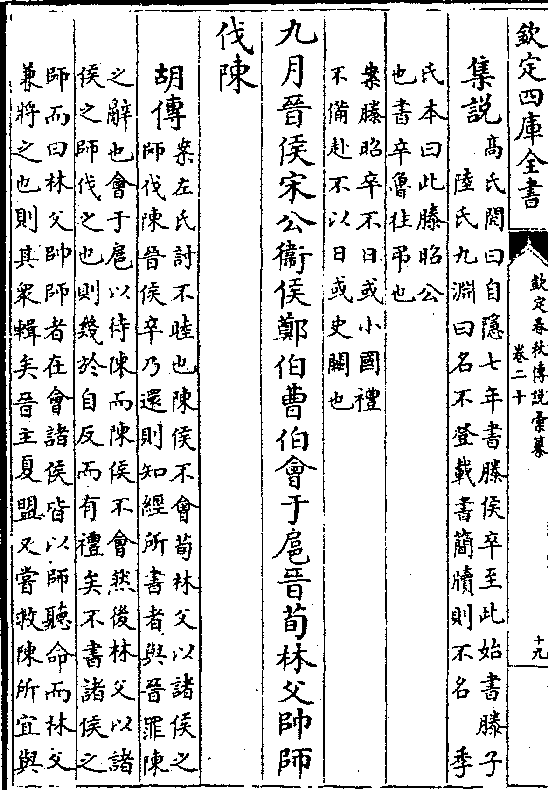 欽定四庫全書
欽定春秋傳說彙纂
卷二十
十九
集說
高氏閌曰自隱七年書滕侯卒至此始書滕子
陸氏九淵曰名不登載書簡牘則不名 季
氏本曰此滕昭公
也書卒魯往弔也
案滕昭卒不日或小國禮
不備赴不以日或史闕也
九月晉侯宋公衞侯鄭伯曹伯會于扈晉荀林父帥師
伐陳
胡傳
案左氏討不睦也陳侯不會荀林父以諸侯之
師伐陳晉侯卒乃還則知經所書者與晉罪陳
之辭也會于扈以待陳而陳侯不會然後林父以諸
侯之師伐之也則幾於自反而有禮矣不書諸侯之
師而曰林父帥師者在會諸侯皆以師聽命而林父
兼將之也則其衆輯矣晉主夏盟又嘗救陳所宜與